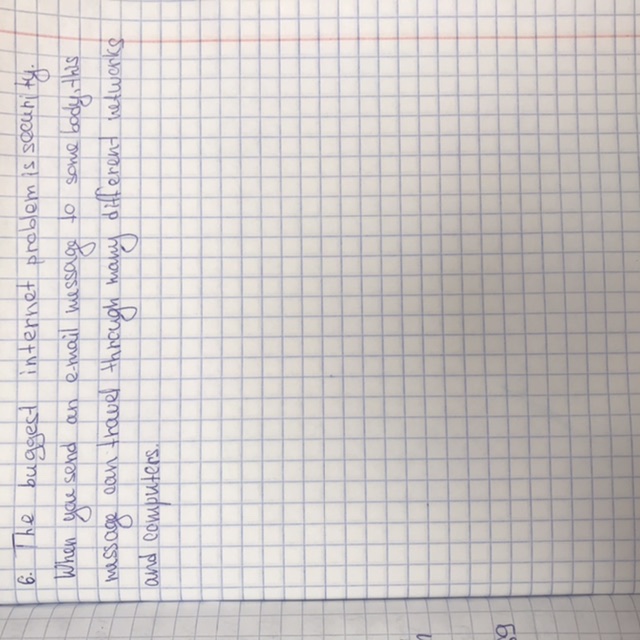 6. The buggest internet problem is security.
When you send an e-mail message to some body, this
message can travel through many different networks
and computers.